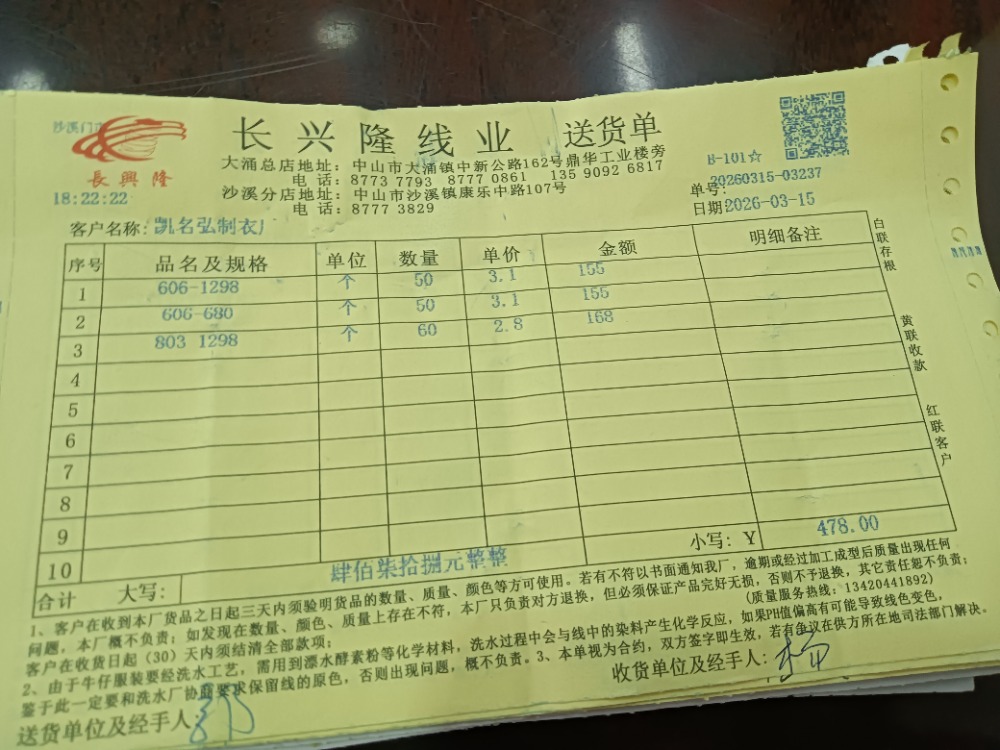 沙溪门市
長興隆
18:22:22
长兴隆线业 送货单
大涌总店地址：中山市大涌镇中新公路162号鼎华工业楼旁
电话：8773 7793 8777 0861 135 9092 6817
沙溪分店地址：中山市沙溪镇康乐中路107号
电话：8777 3829
B-101☆
单号：20260315-03237
日期2026-03-15
客户名称：凯名弘制衣厂
序号 品名及规格 单位 数量 单价 金额 明细备注
1 606-1298 个 50 3.1 155
2 606-680 个 50 3.1 155
3 803 1298 个 60 2.8 168
4
5
6
7
8
9
10
合计 大写：肆佰柒拾捌元整整 小写：Y 478.00
白联存根
黄联收款
红联客户
1、客户在收到本厂货品之日起三天内须验明货品的数量、质量、颜色等方可使用。若有不符以书面通知我厂，逾期或经过加工成型后质量出现任何
问题，本厂概不负责；如发现在数量、颜色、质量上存在不符，本厂只负责对方退换，但必须保证产品完好无损，否则不予退换，其它责任恕不负责；
客户在收货日起（30）天内须结清全部款项； （质量服务热线：13420441892）
2、由于牛仔服装要经洗水工艺，需用到漂水酵素粉等化学材料，洗水过程中会与线中的染料产生化学反应，如果PH值偏高有可能导致线色变色，
鉴于此一定要和洗水厂协商要求保留线的原色，否则出现问题，概不负责。3、本单视为合约，双方签字即生效，若有争议在供方所在地司法部门解决。
送货单位及经手人： 收货单位及经手人：